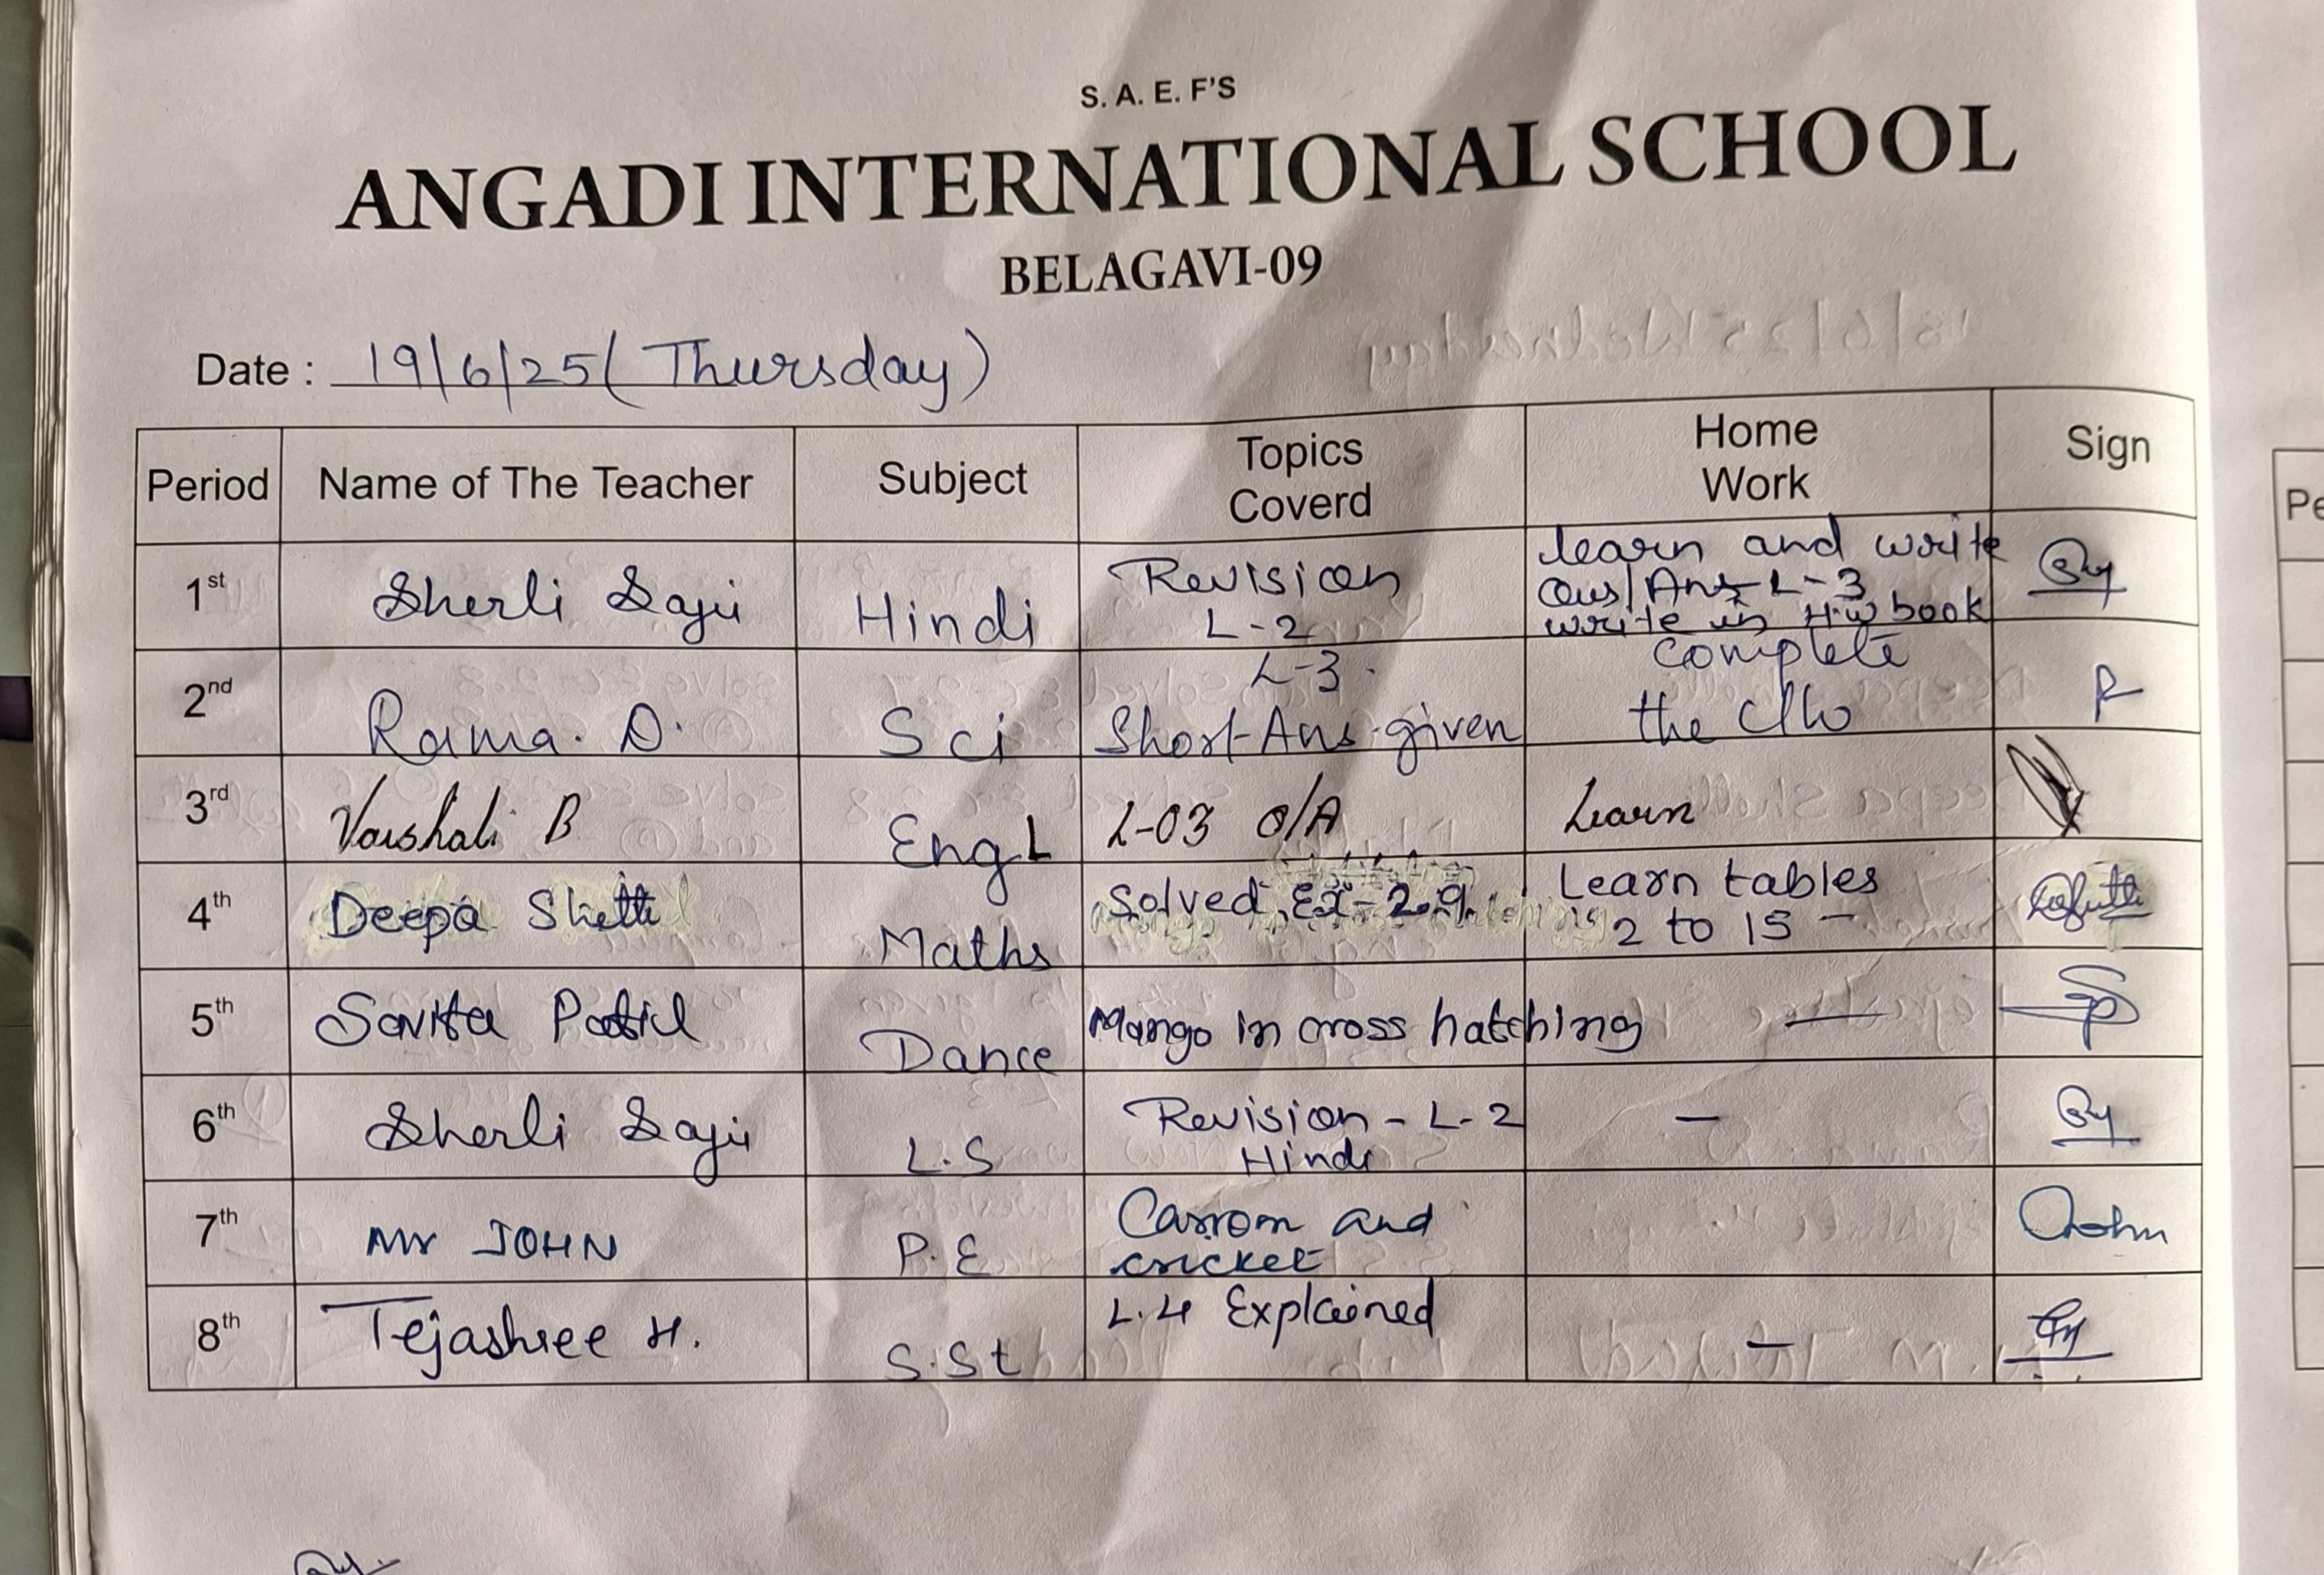 S. A. E. F'S
ANGADI INTERNATIONAL SCHOOL
BELAGAVI-09
Date : 19/6/25 (Thursday)
Period Name of The Teacher Subject Topics Coverd Home Work Sign
1st Sherli Saju Hindi Revision L-2 learn and write Qus/Ans L-3 write in H.w book
2nd Rama. D. Sci L-3. Short Ans given complete the C/w
3rd Vaishali B Eng L L-03 Q/A Learn
4th Deepa Shetti Maths Solved Ex-2.9. Learn tables 2 to 15 -
5th Savita Patil Dance Mango in cross hatching —
6th Sherli Saju L.S Revision - L-2 Hindi -
7th Mr JOHN P.E Carrom and cricket John
8th Tejashree H. S.St L.4 Explained -
Pe